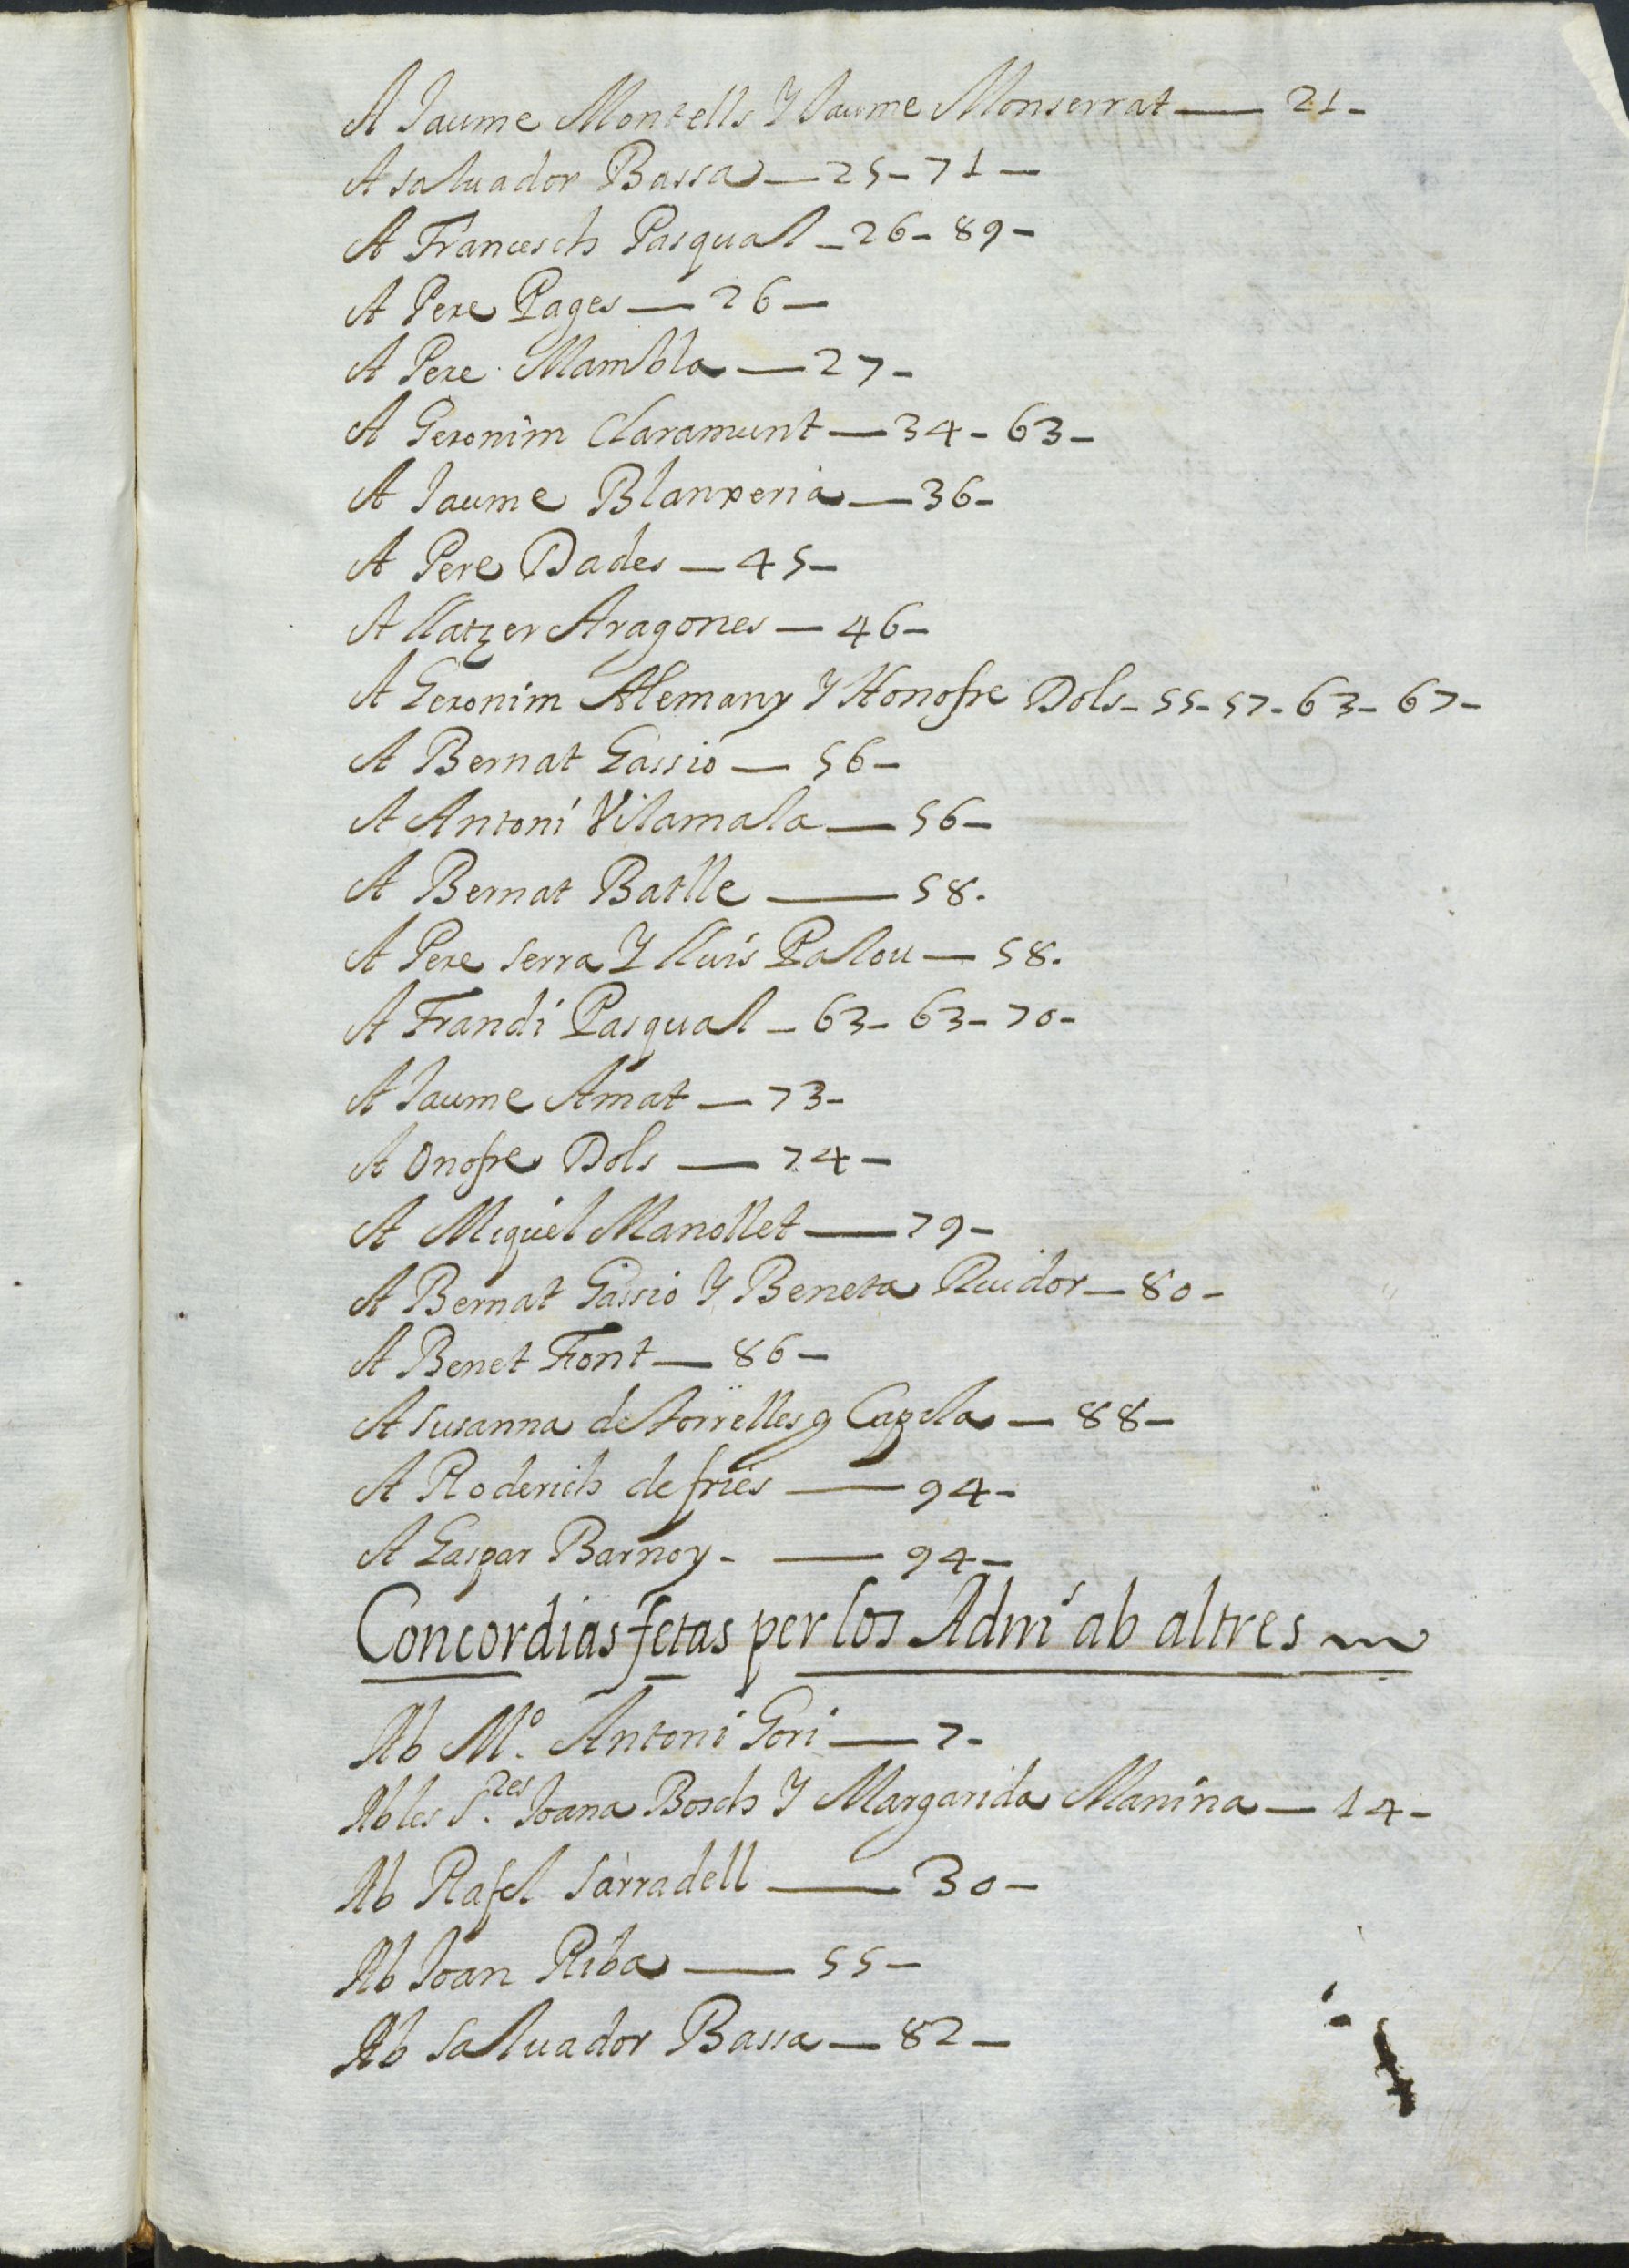 A Jaume Montells Y Jaume Monserrat — 21 -
A saluador Bassa — 25 - 71 —
A Francesch Pasqual - 26 - 89 -
A Pere Pages — 26 —
A Pere Mambla — 27 -
A Geronim Claramunt — 34 - 63 -
A Jaume Blanxeria — 36 -
A Pere Dades — 45 -
A llatzer Aragones — 46 -
A Geronim Alemany Y Honofre Dols - 55 - 57 - 63 - 67 -
A Bernat Gassio — 56 -
A Antoni Vilamala — 56 -
A Bernat Batlle — 58.
A Pere serra Y lluis Palou — 58.
A Frandi Pasqual - 63 - 63 - 70 -
A Jaume Amat — 73 -
A Onofre Dols — 74 -
A Miquel Manollet — 79 -
A Bernat Gassio Y Beneta Ruidor — 80 -
A Benet Font — 86 -
A Susanna de torrelles y — 88 -
A Roderich de fries — 94 -
A Gaspar Barnoy - — 94 -
Concordias fetas per los Admi' ab altres
Ab M.º Antoni Gori — 7 -
Ab les S.res Joana Bosch Y Margarida Manina — 14 -
Ab Rafel Sarradell — 30 -
Ab Joan Riba — 55 -
Ab Saluador Bassa — 82 -